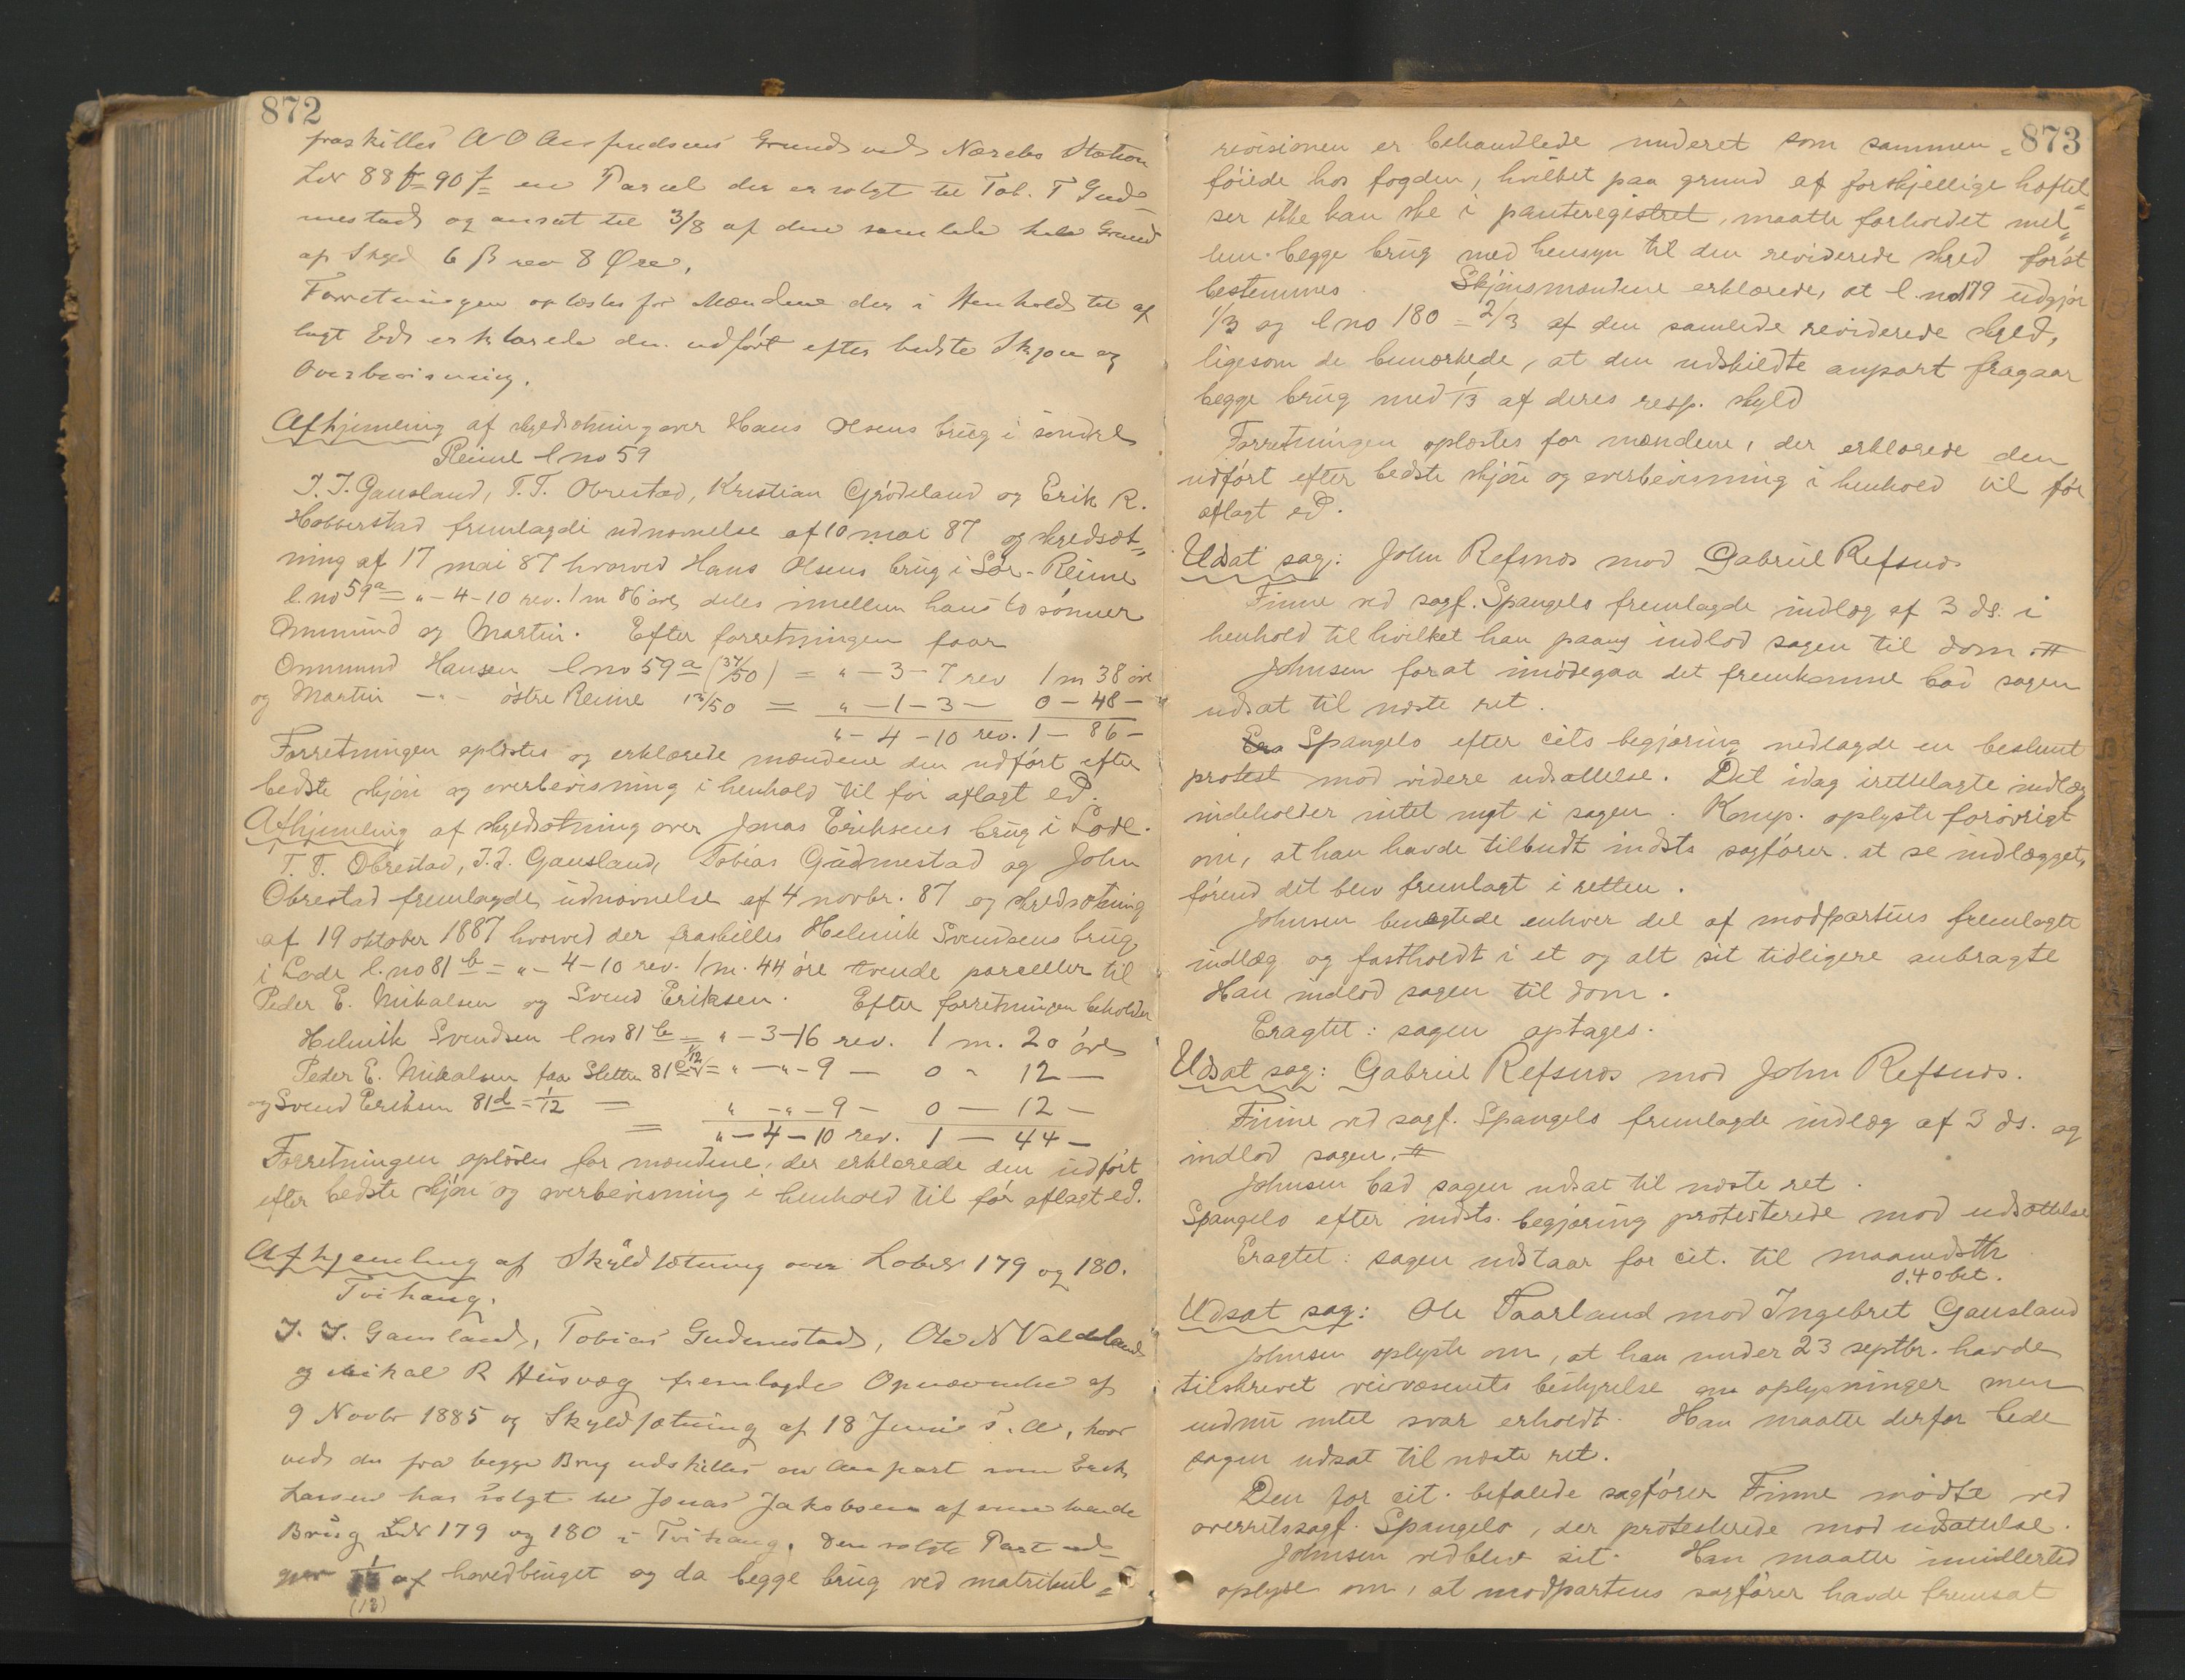 872
fraskilles A O Aanfindsens Grund ved Nærebø Station
LNr 88 f= 90 f= en Parcel der er solgt til Tob. T Gud=
mestad og ansat til 3/8 af den samlede hele Grund
af Skyld 6 β rev 8 Øre,
Forretningen oplæstes for Mændene der i Henhold til af
lagt Ed erklærede den udført efter bedste Skjøn og
Overbevisning.
Afhjemling af skyldsætning over Hans Olsens brug i søndre
Reime l no 59
J. J. Gausland, T. T. Obrestad, Kristian Grødeland og Erik R.
Hobberstad fremlagde udnævnelse af 10 mai 87 og skyldsæt=
ning af 17 mai 87 hvorved Hans Olsens brug i Sør-Reime
l. no 59a = „ - 4 - 10 rev. 1 m 86 øre, deles imellem hans to sønner
Ommund og Martin. Efter forretningen faar
Ommund Hansen l no 59a (37/50) = „ - 3 - 7 rev 1 m 38 øre
og Martin -„- østre Reime 13/50 = „ - 1 - 3 - 0 - 48 -
„ - 4 - 10 rev. 1 - 86 -
Forretningen oplæstes og erklærede mændene den udført efter
bedste skjøn og overbevisning i henhold til før aflagt ed.
Afhjemling af skyldsætning over Jonas Eriksens brug i Lode.
T. T. Obrestad, J. J. Gausland, Tobias Gudmestad og John
Obrestad fremlagde udnævnelse af 4 novbr. 87 og skyldsætning
af 19 oktober 1887 hvorved der fraskilles Helmik Svendsens brug
i Lode l. no 81 b = „ - 4 - 10 rev. 1 m. 44 øre tvende parceller til
Peder E. Mikalsen og Svend Eriksen. Efter forretningen beholder
Helmik Svendsen l no 81 b = „ - 3 - 16 rev. 1 m. 20 øre
Peder E. Mikalsen faar Sletten 81 c 1/12 = „ - „ - 9 - 0 - 12 -
og Svend Eriksen 81 d = 1/12 = „ - „ - 9 - 0 - 12 -
= „ - 4 - 10 rev. 1 - 44 -
Forretningen oplæstes for mændene, der erklærede den udført
efter bedste skjøn og overbevisning i henhold til før aflagt ed.
Afhjemling af Skyldsætning over Løbenr 179 og 180.
Tvihaug.
J. J. Gausland, Tobias Gudmestad, Ole N Valdeland
og Mikal R Husvæg fremlagde Opnævnelse af
9 Novbr 1885 og Skyldsætning af 18 Juni s. A, hvor
ved der fra begge Brug udskilles en Anpart som Erik
Larsen har solgt til Jonas Jakobsen af sine tvende
Brug LNr 179 og 180 i Tvihaug. Den solgte Part ud=
gjør 1/13 af hovedbruget og da begge brug ved matrikul=
(13)
873
revisionen er behandlede underet som sammen=
føiede hos fogden, hvilket paa grund af forskjellige hæftel=
ser ikke kan ske i panteregistret, maatte forholdet mel=
lem begge brug med hensyn til den reviderede skyld først
bestemmes. Skjønsmændene erklærede, at l. no 179 udgjør
1/3 og l no 180 = 2/3 af den samlede reviderede skyld,
ligesom de bemærkede, at den udskildte anpart fragaar
begge brug med 1/13 af deres resp. skyld
Forretningen oplæstes for mændene, der erklærede den
udført efter bedste skjøn og overbevisning i henhold til før
aflagt ed.
Udsat sag: John Refsnæs mod Gabriel Refsnæs
Finne ved sagf. Spangelo fremlagde indlæg af 3 ds. i
henhold til hvilket han paany indlod sagen til dom. #
Johnsen forat imødegaa det fremkomne bad sagen
udsat til næste ret.
Spangelo efter cits begjæring nedlagde en bestemt
protest mod videre udsættelse. Det idag irettelagte indlæg
indeholder intet nyt i sagen. Komp. oplyste forøvrigt
om, at han havde tilbudt indsts sagfører at se indlægget,
førend det blev fremlagt i retten.
Johnsen benægtede enhver del af modpartens fremlagte
indlæg og fastholdt i et og alt sit tidligere anbragte
Han indlod sagen til dom.
Eragtet: sagen optages.
Udsat sag: Gabriel Refsnæs mod John Refsnæs.
Finne ved sagf. Spangelo fremlagde indlæg af 3 ds. og
indlod sagen. #
Johnsen bad sagen udsat til næste ret.
Spangelo efter indsts. begjæring protesterede mod udsættelse
Eragtet: sagen udstaar for cit. til maanedsth
0.40 bet.
Udsat sag: Ole Taarland mod Ingebret Gausland
Johnsen oplyste om, at han under 23 septbr. havde
tilskrevet veivæsenets bestyrelse om oplysninger men
endnu intet svar erholdt. Han maatte derfor bede
sagen udsat til næste ret.
Den for cit. befalede sagfører Finne mødte ved
overretssagf. Spangelo, der protesterede mod udsættelse.
Johnsen vedblev sit. Han maatte imidlertid
oplyse om, at modpartens sagfører havde fremsat